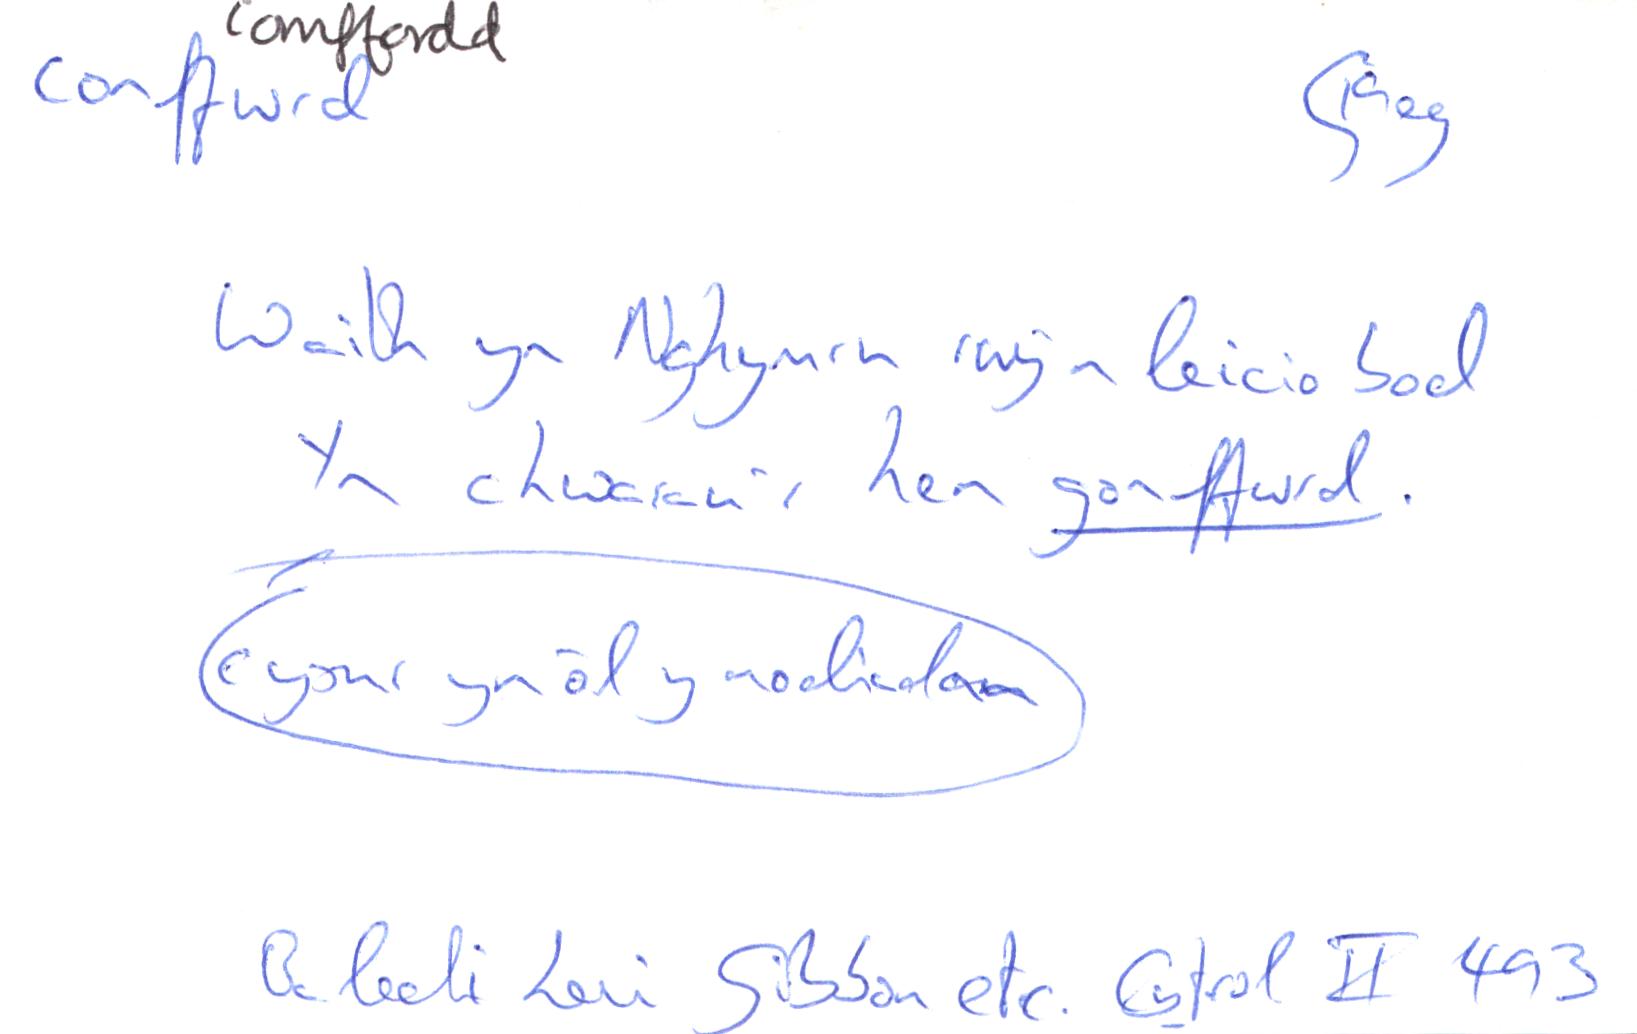 comffordd
conffwrd
19eg
Waith yn Nghymru rwy'n leicio bod
Yn chwarau'r hen gonffwrd.
cysur yn ôl y nodiadau
Baledi Levi Gibbon etc. Cyfrol II 493